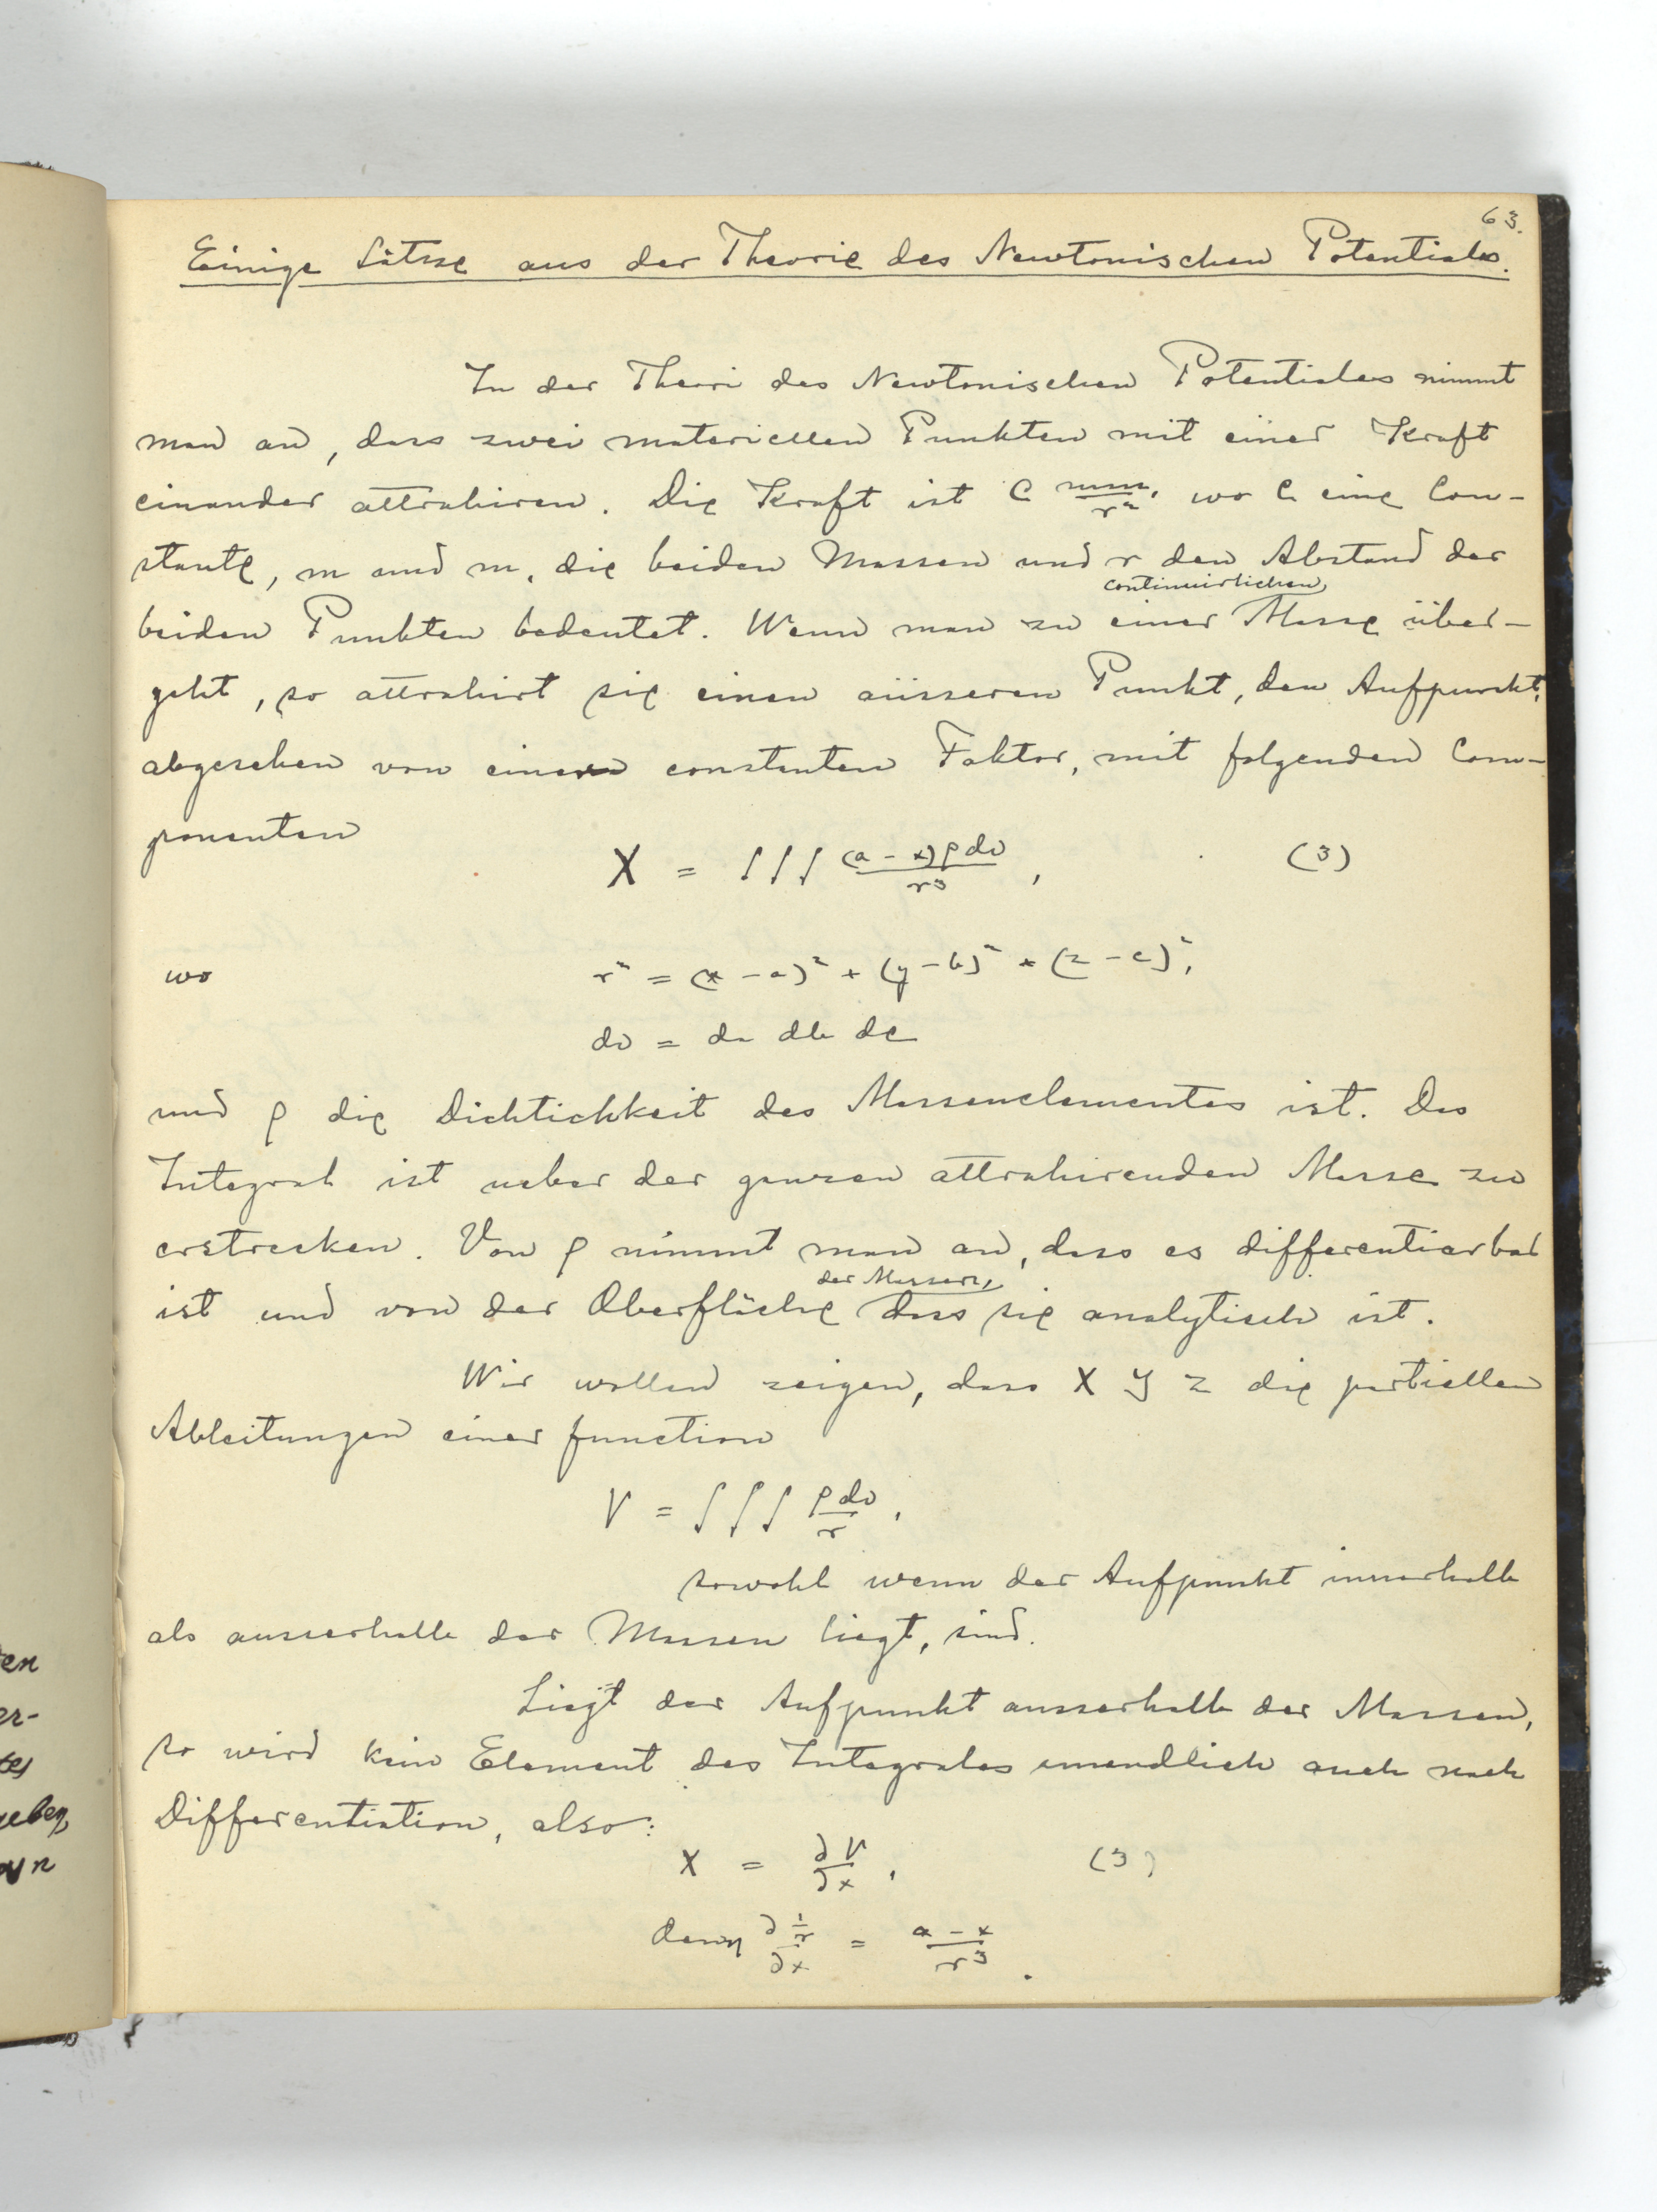 63.
Einige Sätze aus der Theorie des Newtonischen Potentiales.
In der Theori des Newtonischen Potentiales nimmt
man an, dass zwei materiellen Punkten mit einer Kraft
einander attrahiren. Die Kraft ist C mm₁/r², wo C eine Con-
stante, m und m₁ die beiden Massen und r den Abstand der
continuirlichen
beiden Punkten bedeutet. Wenn man zu einer Masse über-
geht, so attrahirt sie einen äüsseren Punkt, den Aufpunkt,
abgesehen von einem constanten Faktor, mit folgenden Com-
ponenten
X = ∫∫∫ (a - x)ρdv/r³, (3)
wo r² = (x - a)² + (y - b)² + (z - c)²,
dv = da db dc
und ρ die Dichtichkeit des Massenelementes ist. Das
Integral ist ueber der ganzen attrahirenden Masse zu
erstrecken. Von ρ nimmt man an, dass es differentiarbar
der Massen,
ist und von der Oberfläche dass sie analytisch ist.
Wir wollen zeigen, dass X Y Z die partiellen
Ableitungen einer function
V = ∫∫∫ ρdv/r,
sowohl wenn der Aufpunkt innerhalb
als ausserhalb der Massen liegt, sind.
Liegt der Aufpunkt ausserhalb der Massen,
so wird kein Element des Integrales unendlich auch nach
Differentiation, also:
X = ∂V/∂x, (3)
denn ∂(1/r)/∂x = (a - x)/r³.
en
er-
tes
geben,
n